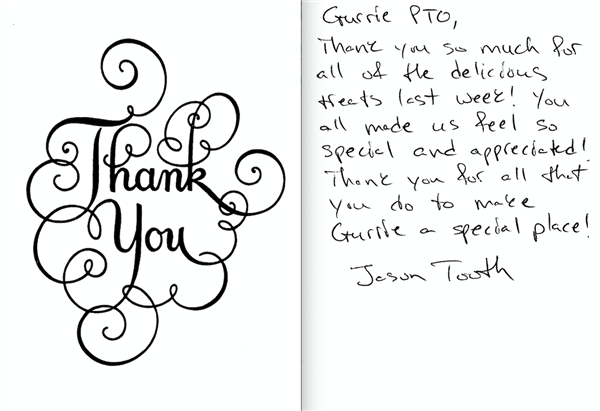 Thank
You
Gurrie PTO,
Thank you so much for
all of the delicious
treats last week! You
all made us feel so
special and appreciated!
Thank you for all that
you do to make
Gurrie a special place!
Jason Tooth